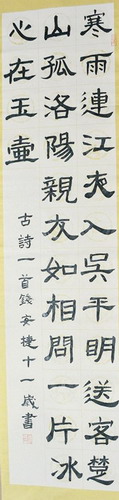 寒雨連江夜入吳平明送客楚
山孤洛陽親友如相問一片冰
心在玉壺
古詩一首錢安捷十一歲書